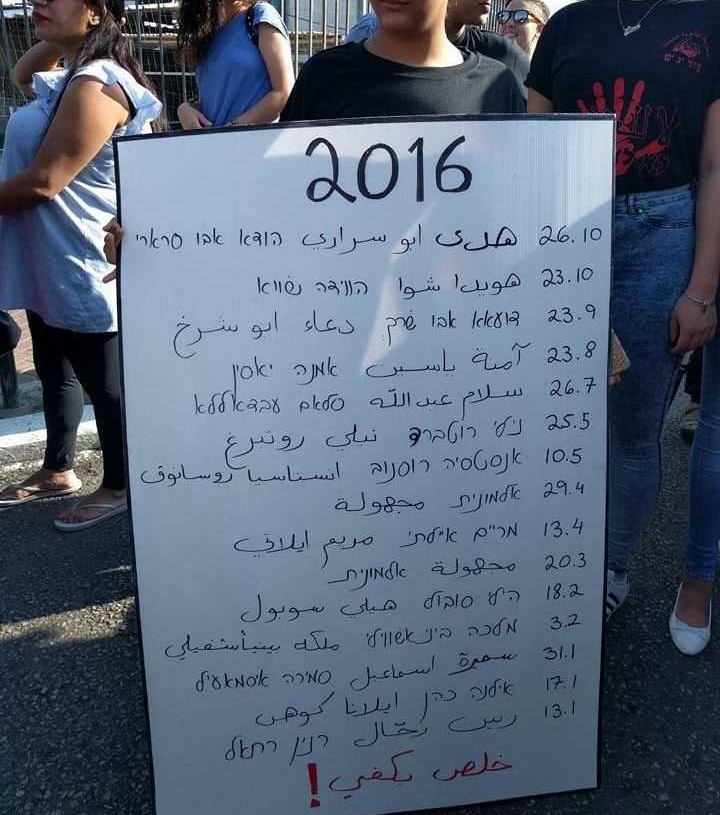 2016
26.10 هدى ابو سراري הודא אבו סרארי
23.10 هويدا شوا הווידה שווא
23.9 דועאא אבו שרח دعاء ابو شرخ
23.8 آمنة ياسين אמנה יאסין
26.7 سلام عبدالله סלאם עבדאללא
25.5 נילי רוטברג نيلي روتبرغ
10.5 אנסטסיה רוסנוב انستاسيا روسانوف
29.4 אלמונית مجهولة
13.4 מרים אילתי مريم ايلاتي
20.3 مجهولة אלמונית
18.2 הילי סובול هيلي سوبول
3.2 מלכה בינאשווילי ملكه بينيأشفيلي
31.1 سميرة اسماعيل סמירה איסמאעיל
17.1 אילנה כהן ايلانا كوهن
13.1 رنين رحّال רנין רחאל
خلص بكفي!